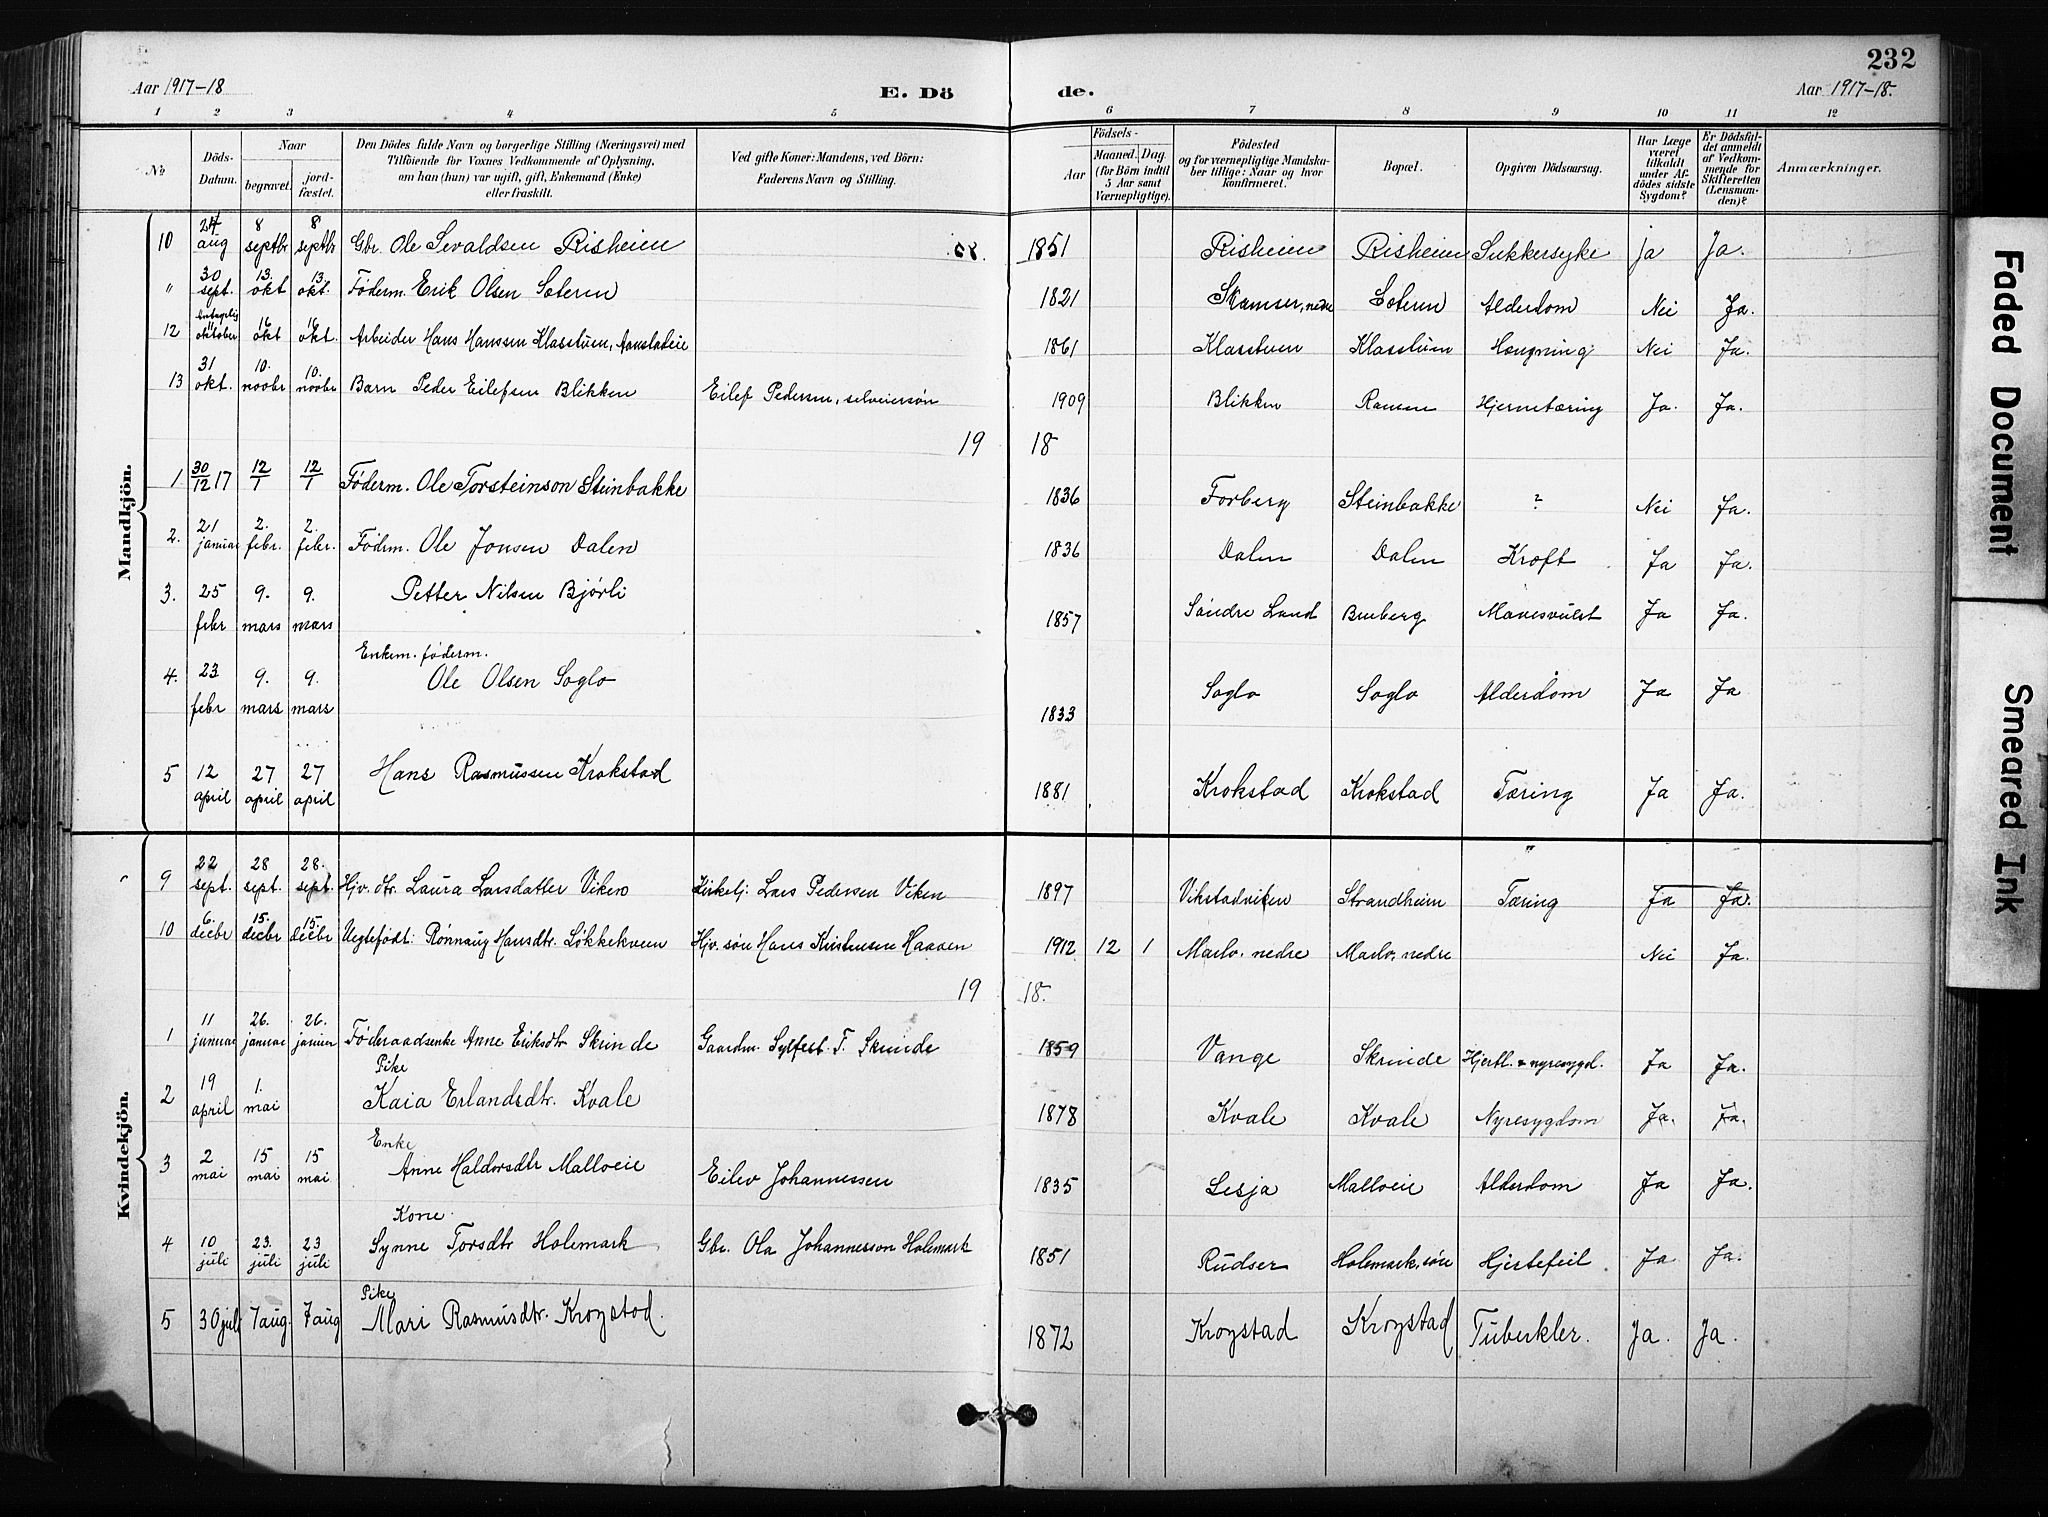 232
Aar 1917-18
E. Dö
de.
Aar 1917-18.
1 2 3 4 5 6 7 8 9 10 11 12
No
Döds-Datum.
Naar
begravet.
jord-fæstet.
Den Dödes fulde Navn og borgerlige Stilling (Næringsvei) med
Tilföiende for Voxnes Vedkommende af Oplysning,
om han (hun) var ugift, gift, Enkemand (Enke)
eller fraskilt.
Ved gifte Koner: Mandens, ved Börn:
Faderens Navn og Stilling.
Födsels-
Aar
Maaned. Dag
(for Börn indtil
5 Aar samt
Værnepligtige).
Födested
og for værnepligtige Mandska-
ber tillige: Naar og hvor
konfirmeret.
Bopæl.
Opgiven Dödsaarsag.
Har Læge
været
tilkaldt
under Af-
dödes sidste
Sygdom?
Er Dödsfal-
det anmeldt
af Vedkom-
mende for
Skifteretten
(Lensman-
den)?
Anmærkninger.
Mandkjön.
10 24 aug 8 septbr 8 septbr Gbr. Ole Sevaldsen Risheim 1851 Risheim Risheim Sukkersyke Ja Ja.
" 30 sept. 13. okt 13. okt. Föderm. Erik Olsen Soteren 1821 Skamser, nedre Soteren Alderdom Nei Ja.
12 oktober 16 okt 16 okt. Arbeider Hans Hanssen Klasstuen, 1861 Klasstuen Klasstuen Hængning Nei Ja.
13 31 okt. 10. novbr 10. novbr Barn Peder Eilefsen Blikken Eilef Pedersen, selveiersøn 1909 Blikken Ramen Hjernetæring Ja. Ja.
19 18
1 30/12 17 12/1 12/1 Föderm. Ole Torsteinson Steinbakke 1836 Forberg Steinbakke ? Nei Ja.
2. 21 januar 2. febr. 2. febr. Föderm. Ole Jonsen Dalen 1836 Dalen Dalen Kræft Ja Ja.
3. 25 febr 9. mars 9. mars Petter Nilsen Bjørli 1857 Søndre Land Bueberg Mavesvulst Ja Ja.
Enkem. föderm.
4. 23 febr 9. mars 9. mars Ole Olsen Soglo 1833 Soglo Soglo Alderdom Ja Ja
5 12 april 27 april 27 april Hans Rasmussen Krokstad 1881 Krokstad Krokstad Tæring Ja Ja.
Kvindekjön.
9 22 sept. 28 sept. 28. sept. Hjv. dtr. Laura Larsdatter Viken Kirkelj. Lars Pedersen Viken 1897 Vikstadviken Strandheim Tæring Ja Ja.
10 6. decbr 15. decbr 15. decbr Uegtefødt: Rønnaug Hansdtr. Løkkekveen Hjv. søn Hans Kristensen Haaven 1912 12 1 Marlo, nedre Marlo, nedre Nei Ja.
19 18.
1 11 januar 26. januar 26. januar Föderaadsenke Anne Eriksdtr Skrinde Gaardm. Sylfest T. Skrinde 1859 Vange Skrinde Hjertl. & nyresygd. Ja Ja.
Pike
2 19 april 1. mai Kaia Erlandsdtr. Kvale 1878 Kvale Kvale Nyresygdom Ja. Ja.
Enke
3 2 mai 15 mai 15 mai Anne Haldorsdtr Malloeie Eilev Johannessen 1835 Lesja Malloeie Alderdom Ja Ja.
Kone.
4 10 juli 23. juli 23 juli Synne Torsdtr Holemark Gbr. Ola Johannesson Holemark 1851 Rudser Holemark, søre Hjertefeil Ja Ja.
Pike
5 30 juli 7 aug. 7 aug Mari Rasmusdtr. Krogstad. 1872 Krogstad Krogstad Tuberkler. Ja. Ja.
Faded Document
Smeared Ink